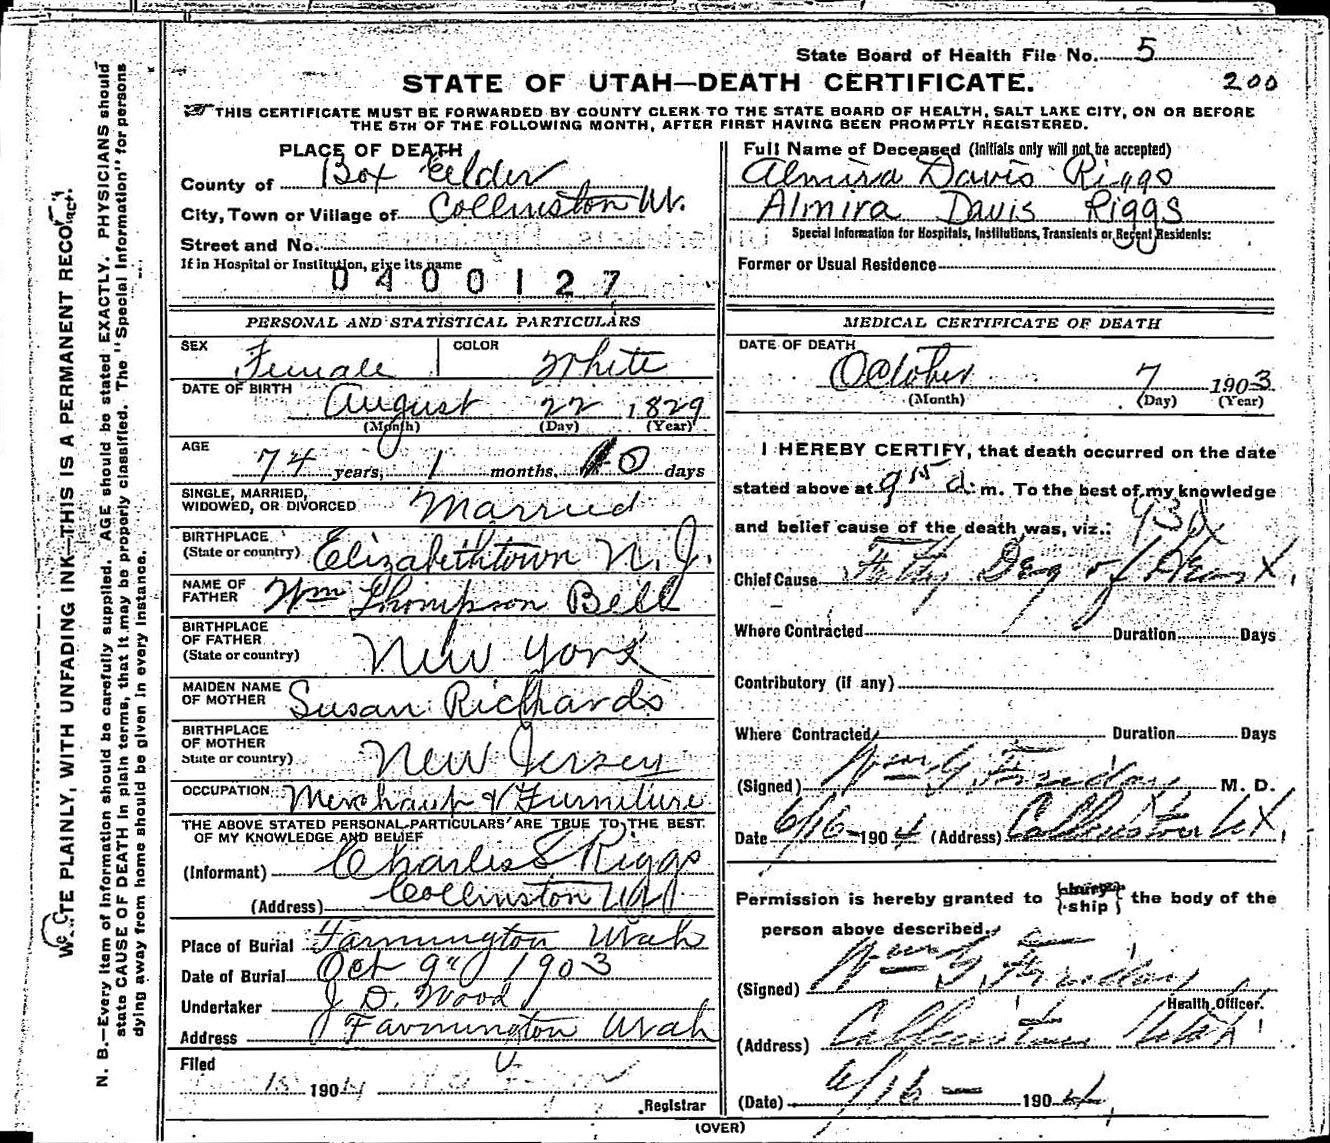 State Board of Health File No. 5
STATE OF UTAH—DEATH CERTIFICATE.
200
THIS CERTIFICATE MUST BE FORWARDED BY COUNTY CLERK TO THE STATE BOARD OF HEALTH, SALT LAKE CITY, ON OR BEFORE
THE 5TH OF THE FOLLOWING MONTH, AFTER FIRST HAVING BEEN PROMPTLY REGISTERED.
PLACE OF DEATH
County of Box Elder
City, Town or Village of Collinston Ut.
Street and No.
If in Hospital or Institution, give its name
0400127
PERSONAL AND STATISTICAL PARTICULARS
SEX Female COLOR White
DATE OF BIRTH August 22 1829
(Month) (Day) (Year)
AGE 74 years, 1 months, days
SINGLE, MARRIED,
WIDOWED, OR DIVORCED Married
BIRTHPLACE
(State or country) Elizabethtown N. J.
NAME OF
FATHER Wm Thompson Bell
BIRTHPLACE
OF FATHER
(State or country) New York
MAIDEN NAME
OF MOTHER Susan Richards
BIRTHPLACE
OF MOTHER
State or country) New Jersey
OCCUPATION Merchant & Furniture
THE ABOVE STATED PERSONAL PARTICULARS ARE TRUE TO THE BEST
OF MY KNOWLEDGE AND BELIEF
(Informant) Charles S Riggs
(Address) Collinston
Place of Burial Farmington Utah
Date of Burial Oct 9th 1903
Undertaker J. D. Wood
Address Farmington Utah
Filed
1904
Registrar
Full Name of Deceased (Initials only will not be accepted)
Almira Davis Riggs
Almira Davis Riggs
Special Information for Hospitals, Institutions, Transients or Recent Residents:
Former or Usual Residence
MEDICAL CERTIFICATE OF DEATH
DATE OF DEATH
October 7 1903
(Month) (Day) (Year)
I HEREBY CERTIFY, that death occurred on the date
stated above at 9 15 a. m. To the best of my knowledge
and belief cause of the death was, viz.:
Chief Cause Fatty Deg of Heart.
Where Contracted Duration Days
Contributory (if any)
Where Contracted Duration Days
(Signed) M. D.
Date 6/16 1904 (Address) Collinston
Permission is hereby granted to {bury ship} the body of the
person above described.
(Signed)
Health Officer.
(Address) Collinston Utah
(Date) 6/16 1904
(OVER)
WRITE PLAINLY, WITH UNFADING INK—THIS IS A PERMANENT RECORD.
N. B.—Every item of information should be carefully supplied. AGE should be stated EXACTLY. PHYSICIANS should
state CAUSE OF DEATH in plain terms, that it may be properly classified. The "Special Information" for persons
dying away from home should be given in every instance.